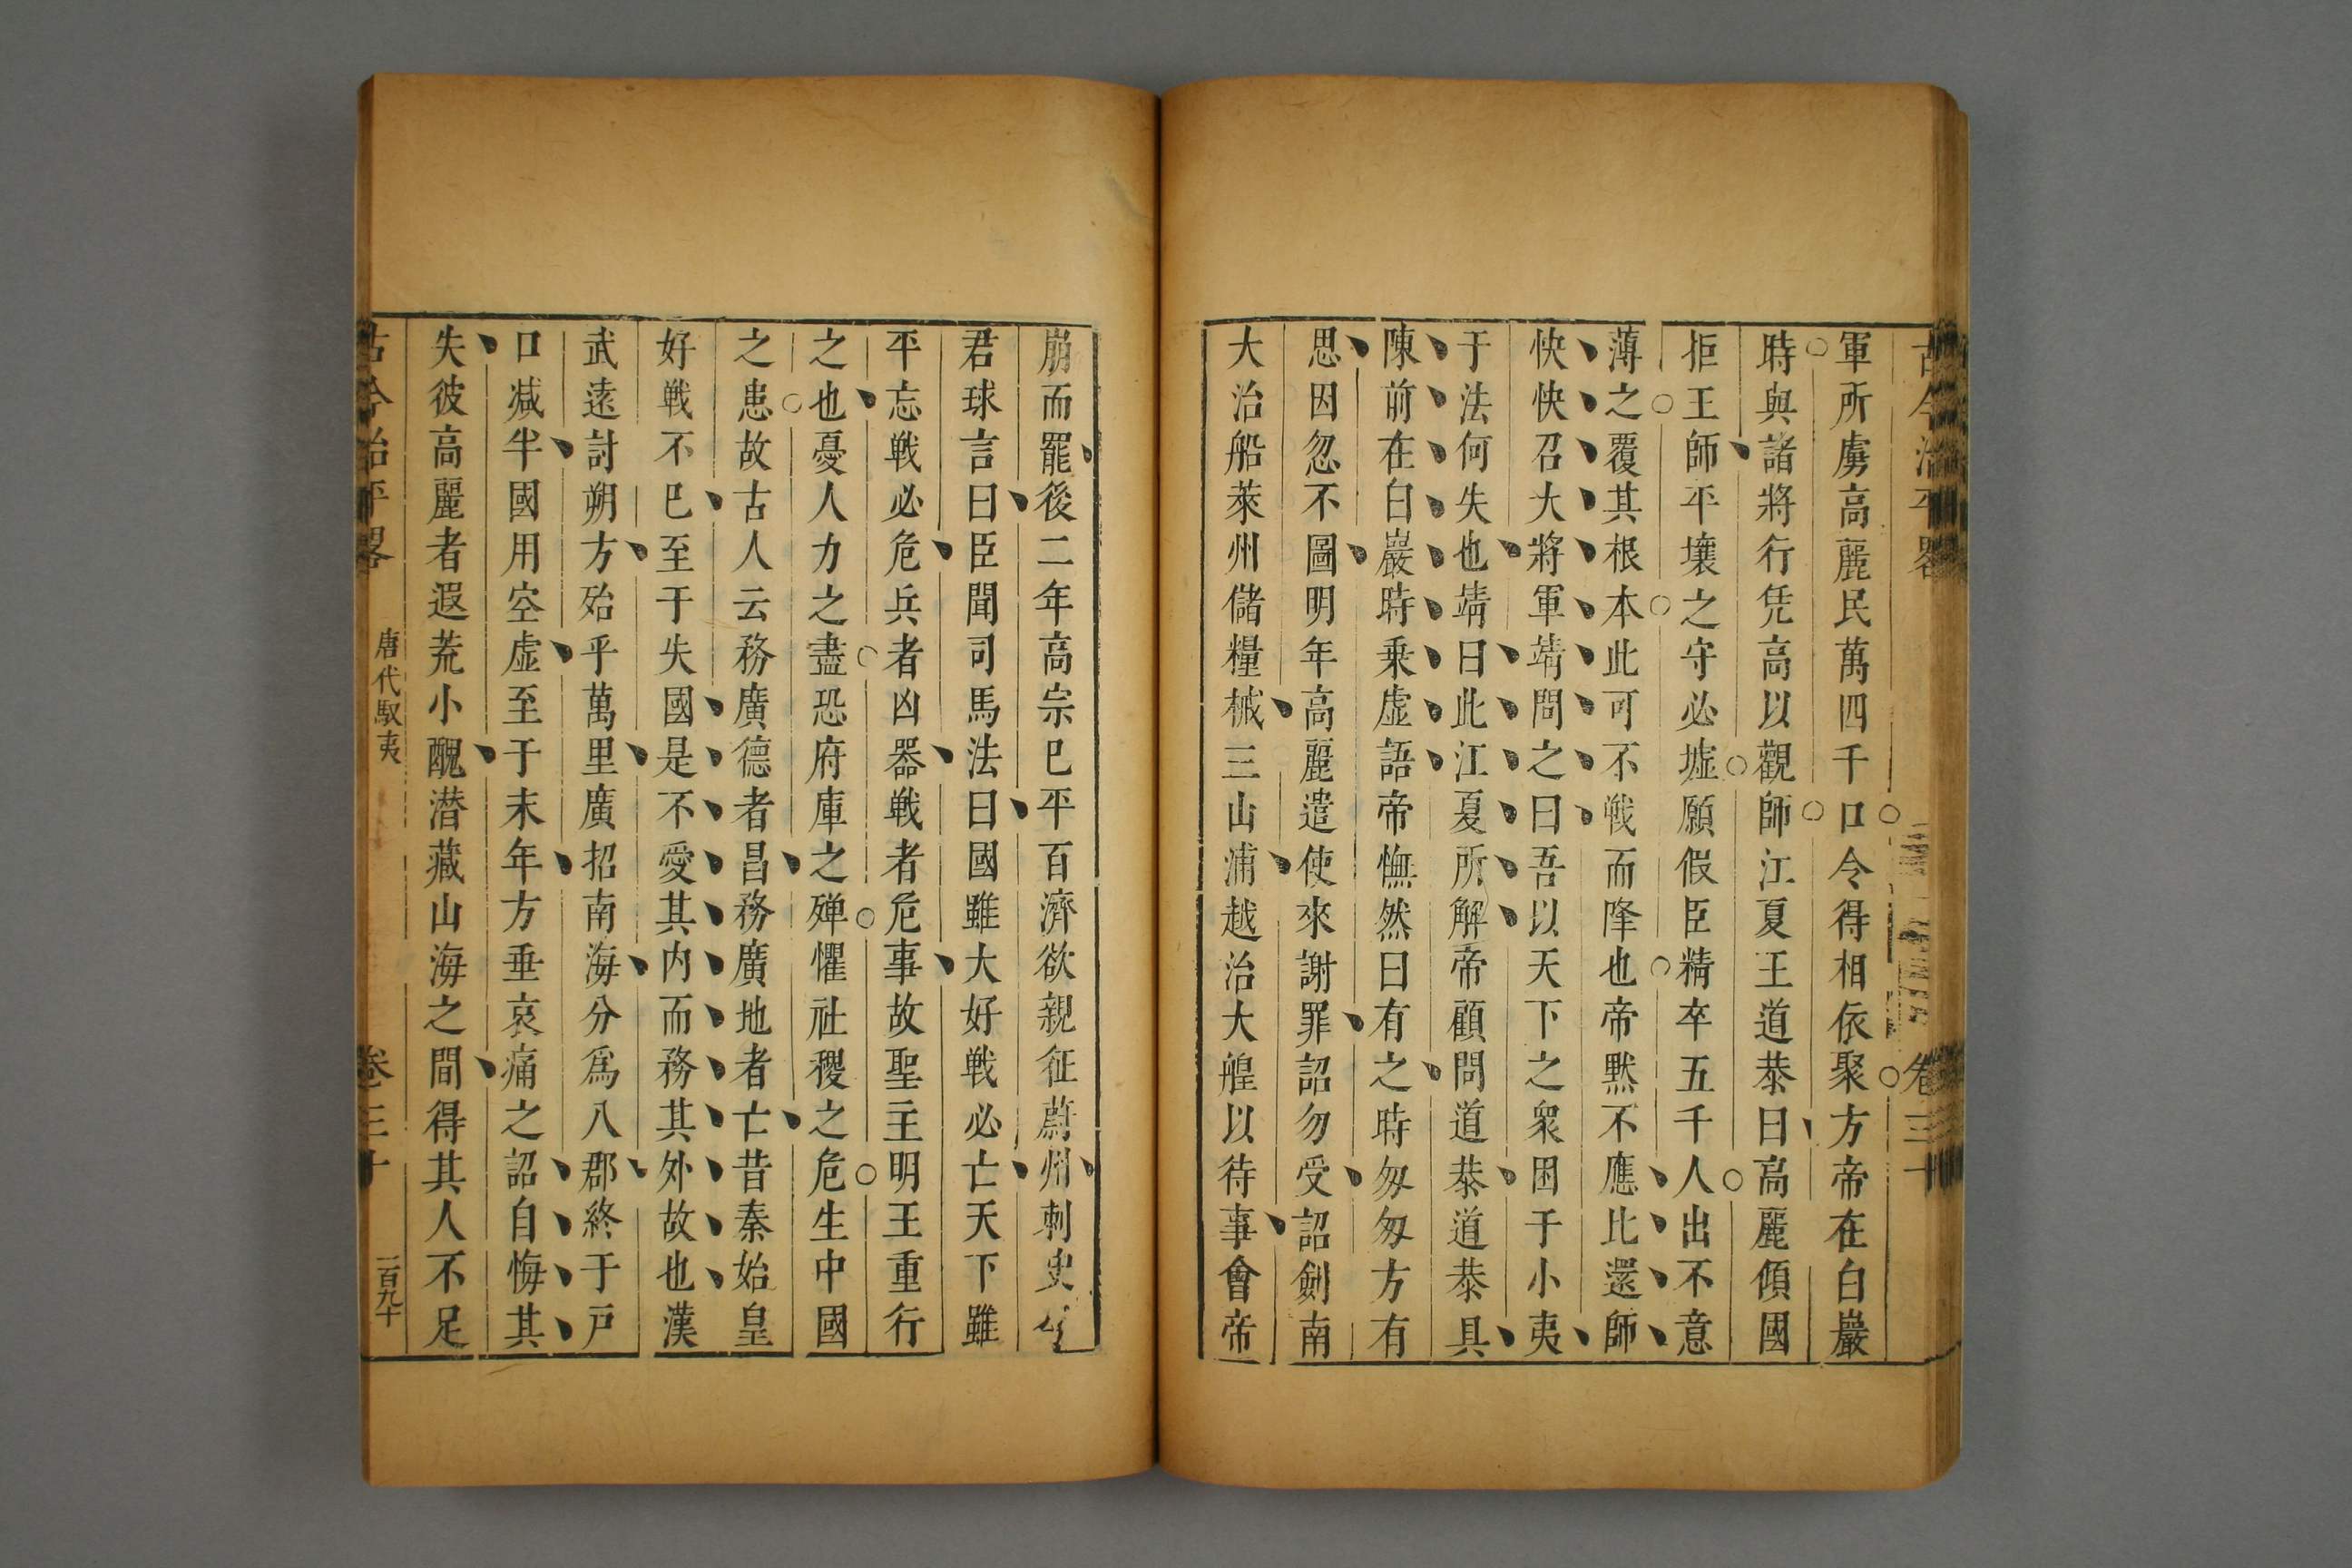 古今治平畧
卷三十
軍所虜高麗民萬四千口令得相依聚方帝在白巖
時與諸將行凭高以觀師江夏王道恭曰高麗傾國
拒王師平壤之守必墟願假臣精卒五千人出不意
薄之覆其根本此可不戦而降也帝黙不應比還師
怏怏召大將軍靖問之曰吾以天下之衆困于小夷
于法何失也靖曰此江夏所解帝顧問道恭道恭具
陳前在白巖時乗虛語帝憮然曰有之時匆匆方有
思因忽不圖明年高麗遣使來謝罪詔勿受詔劍南
大治船萊州儲糧械三山浦越治大艎以待事會帝
崩而罷後二年高宗已平百濟欲親征蔚州刺史
君球言曰臣聞司馬法曰國雖大好戦必亡天下雖
平忘戦必危兵者凶器戦者危事故聖主明王重行
之也憂人力之盡恐府庫之殫懼社稷之危生中國
之患故古人云務廣德者昌務廣地者亡昔秦始皇
好戦不已至于失國是不愛其内而務其外故也漢
武遠討朔方殆乎萬里廣招南海分爲八郡終于戸
口减半國用空虛至于末年方垂哀痛之詔自悔其
失彼高麗者遐荒小醜潜藏山海之間得其人不足
古今治平畧
唐代馭夷
卷三十
一百九十